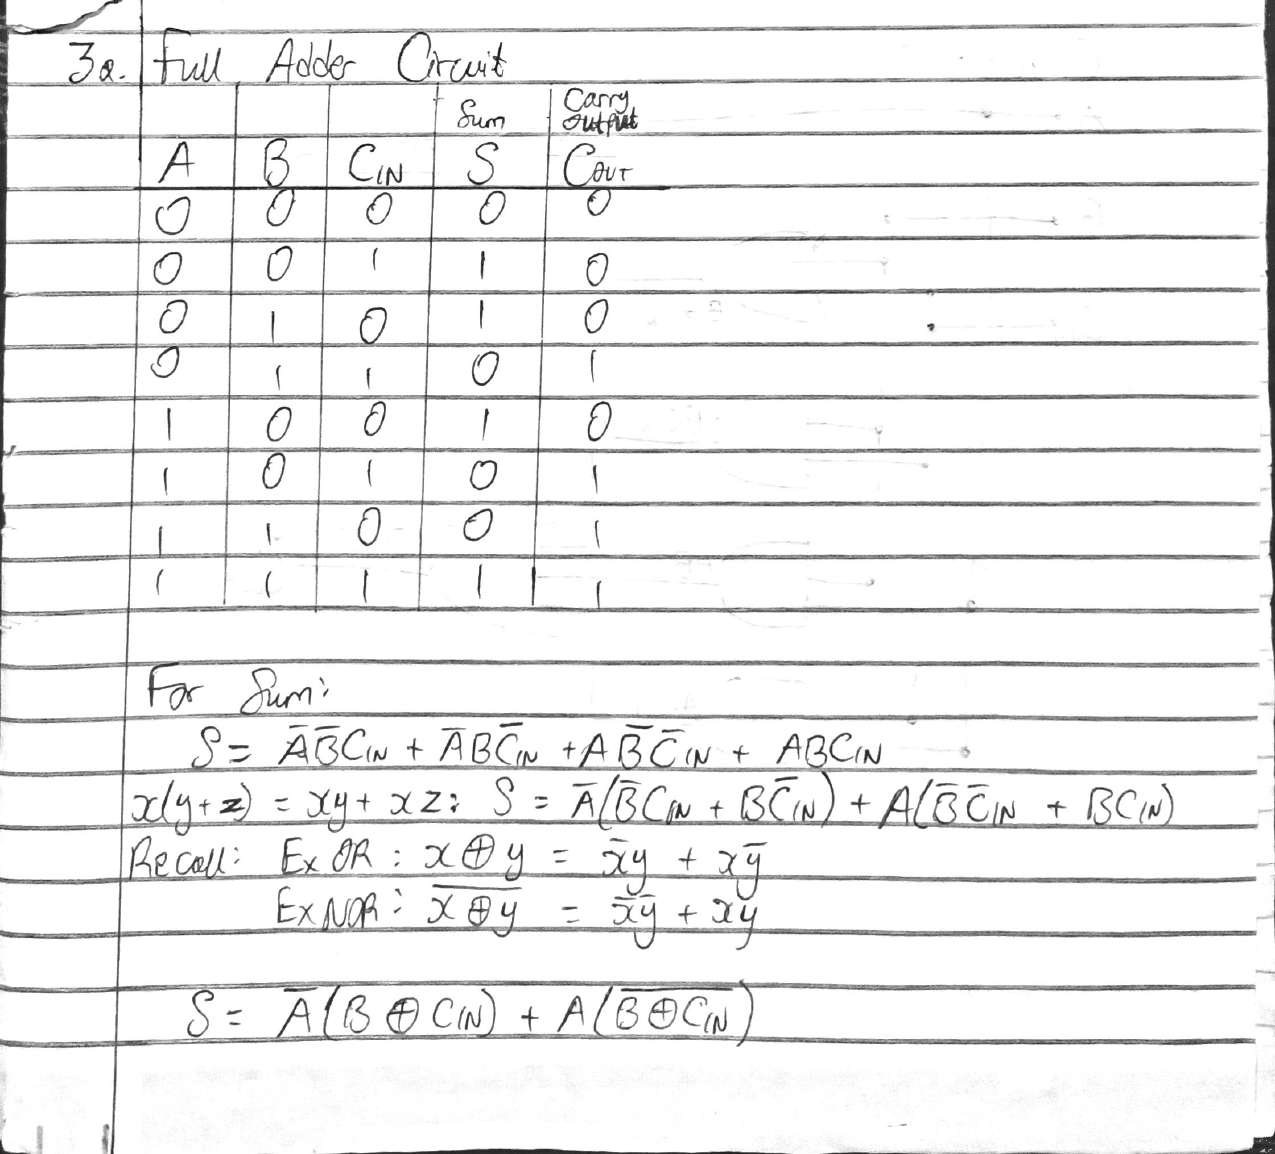 3a. Full Adder Circuit
Sum Carry Output
A B CIN S COUT
0 0 0 0 0
0 0 1 1 0
0 1 0 1 0
0 1 1 0 1
1 0 0 1 0
1 0 1 0 1
1 1 0 0 1
1 1 1 1 1
For Sum:
S = A̅B̅CIN + A̅BC̅IN + AB̅C̅IN + ABCIN
x(y+z) = xy + xz: S = A̅(B̅CIN + BC̅IN) + A(B̅C̅IN + BCIN)
Recall: Ex OR : x ⊕ y = x̅y + xy̅
ExNOR : x̅ ̅⊕̅ ̅y̅ = x̅y̅ + xy
S = A̅(B ⊕ CIN) + A(B̅ ̅⊕̅ ̅C̅I̅N̅)